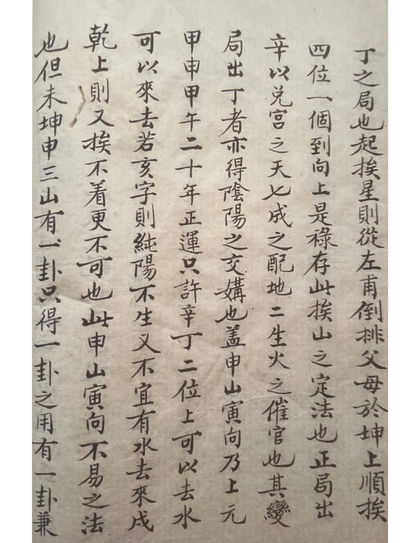 丁之局也起挨星則從左甫倒排父母於坤上順挨
四位一個到向上是祿存此挨山之定法也正局出
辛以兌宮之天七成之配地二生火之催官也其變
局出丁者亦得陰陽之交媾也蓋申山寅向乃上元
甲申甲午二十年正運只許辛丁二位上可以去水
可以來去若亥字則純陽不生又不宜有水去來戌
乾上則又挨不着更不可也此申山寅向不易之法
也但未坤申三山有一卦只得一卦之用有一卦兼